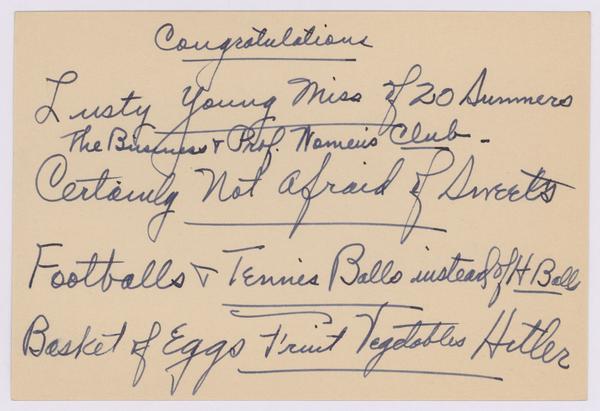 Congratulations
Lusty Young Miss of 20 Summers
The Business & Prof. Women's Club -
Certainly Not Afraid of Sweets
Footballs & Tennis Balls instead of H Balls
Basket of Eggs Fruit Vegetables Hitler